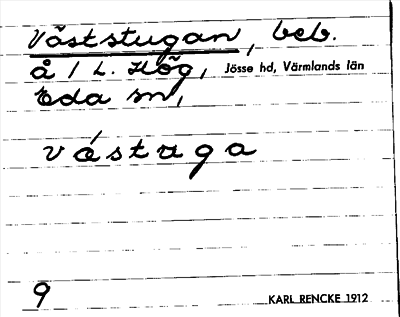 Väststugan, beb.
å / L. Hög, Jösse hd, Värmlands län
Eda sn,
västuga
9
KARL RENCKE 1912